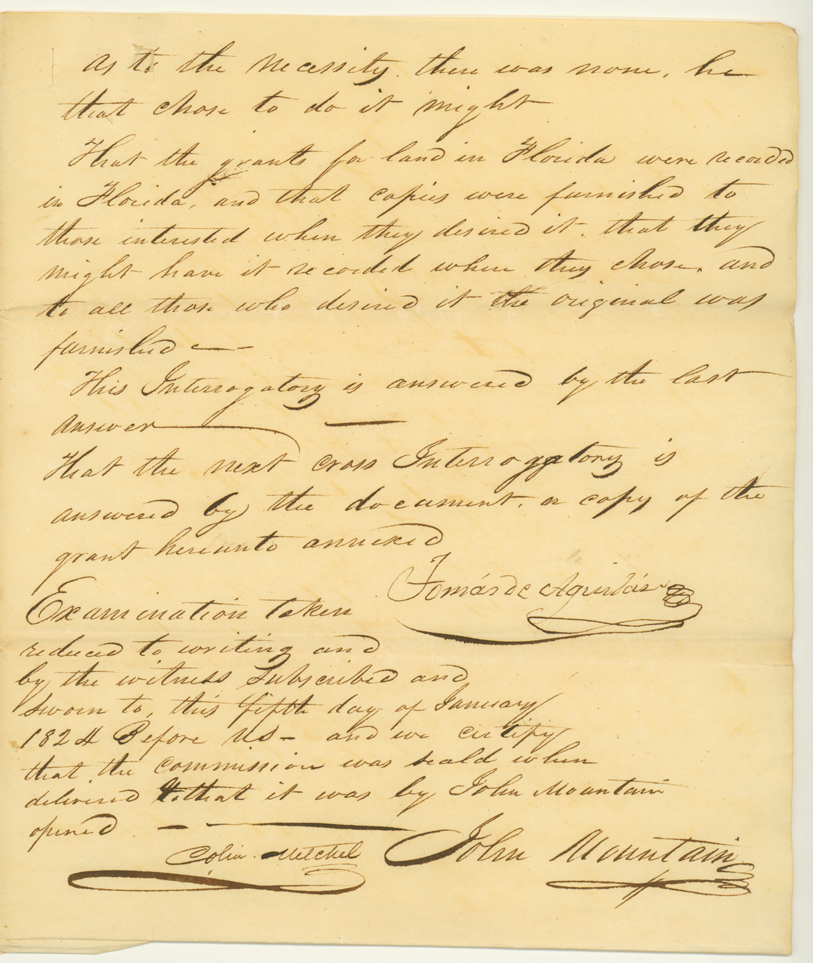 As to the necessity there was none, he
that chose to do it might
That the grants for land in Florida were recorded
in Florida, and that copies were furnished to
those interested when they desired it. that they
might have it recorded where they chose. and
to all those who desired it the original was
furnished —
This Interrogatory is answered by the last
answer — —
That the next cross Interrogatory is
answered by the document. or copy of the
grant hereunto annexed
Tomás de Aguilar
Examination taken
reduced to writing and
by the witness Subscribed and
sworn to, this fifth day of January
1824 Before Us - and we certify
that the commission was seald when
delivered & that it was by John Mountain
opened — —
Colin Mitchel John Mountain